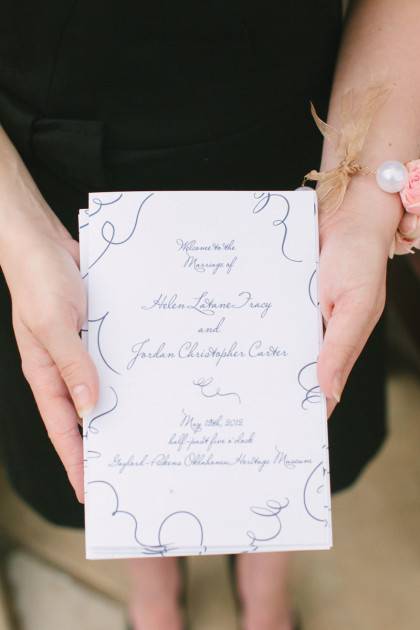 Welcome to the
Marriage of
Helen LaTane Tracy
and
Jordan Christopher Carter
May 12th, 2012
half-past five o'clock
Gaylord-Pickens Oklahoma Heritage Museum